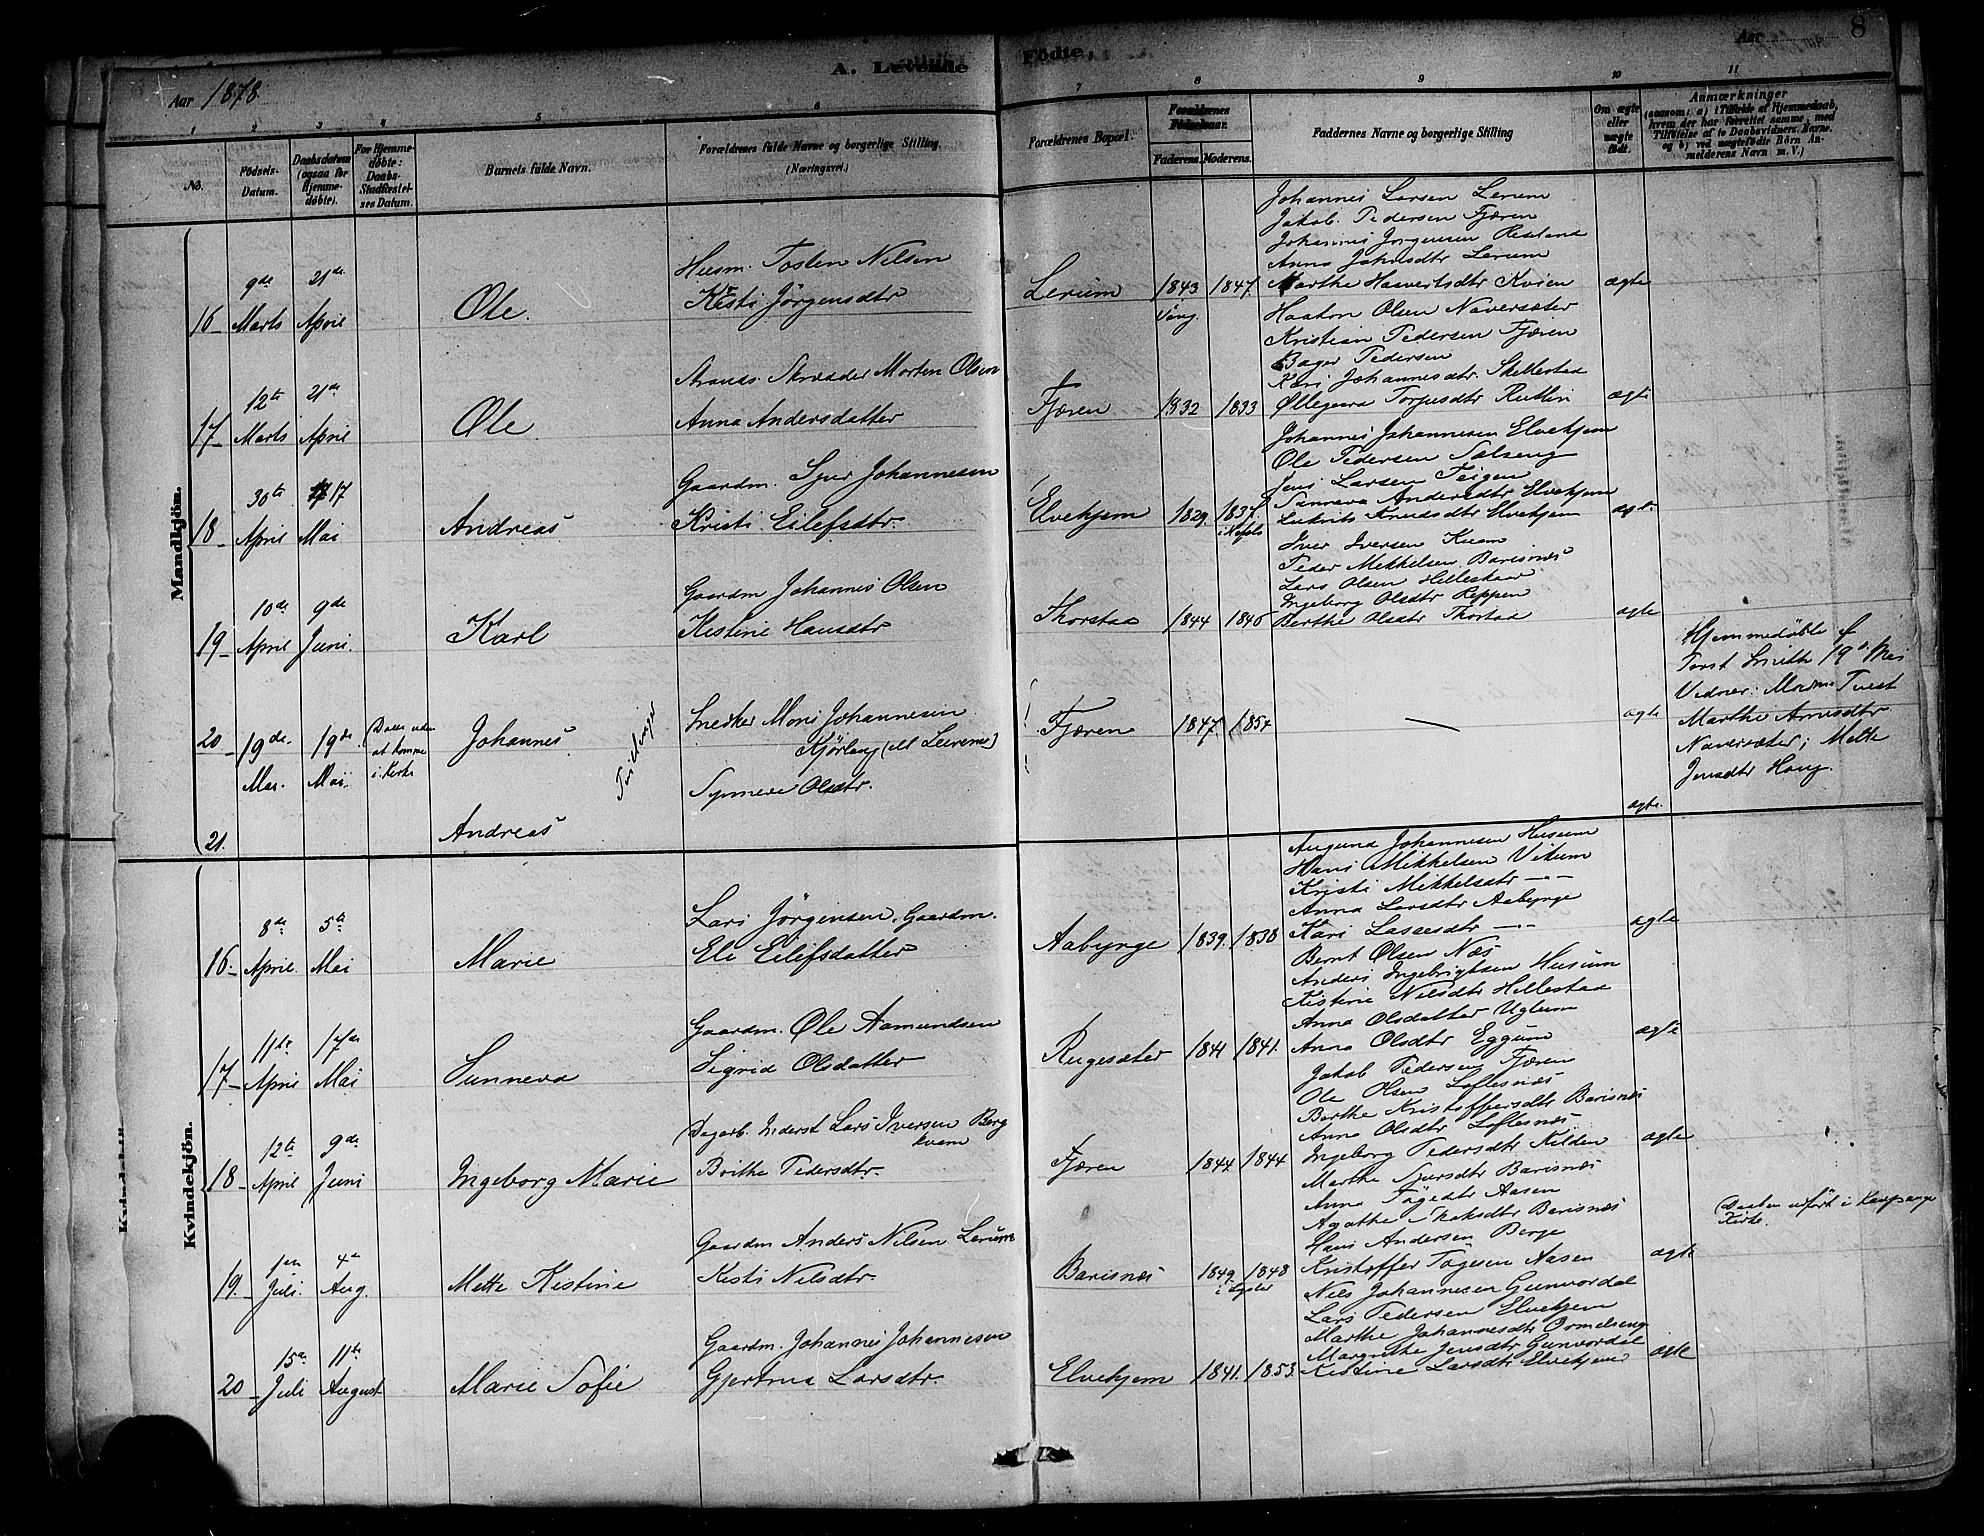 8
A. Levende Födte.
Aar 1878.
Aar
1 2 3 4 5 6 7 8 9 10 11
No.
Födsels-Datum.
Daabsdatum (ogsaa for Hjemme-döbte).
For Hjemme-döbte: Daabs-Stadfæstel-ses Datum.
Barnets fulde Navn.
Forældrenes fulde Navne og borgerlige Stilling.
(Næringsvei.)
Forældrenes Bopæl.
Forældrenes Födselsaar.
Faderens. Moderens.
Faddernes Navne og borgerlige Stilling
Om ægte eller uægte födt.
Anmærkninger
(saasom: a) i Tilfælde af Hjemmedaab, hvem der har forrettet samme, med Tilföielse af to Daabsvidners Navne. og b) ved uægtefödte Börn An-melderens Navn m. V.)
Mandkjön.
16 9de Marts 21de April Ole.
Husm. Tosten Nilsen
Kisti Jörgensdtr
Lerum 1843 Vang. 1847.
Johannes Larsen Lerum
Jakob Pedersen Fjæren
Johannes Jörgensen
Anna Johnsdtr Lerum
Marthe Haavertsdtr Kvien
ægte
17 12te Marts 21de April Ole
Strands. Skrædder Morten Olsen
Anna Andersdatter
Fjæren 1832 1833
Haakon Olsen Naversæter
Kristian Pedersen Fjæren
Bager Pedersen
Kari Johannesdtr.
Øllegaard Torjusdtr Rutlin
ægte
18 30te April 17 Mai Andreas
Gaardm. Sjur Johannesen
Kristi Eilefsdtr.
Elvekjem 1829. 1837.
Johannes Johannesen Elvekjem
Ole Pedersen
Jens Larsen Teigen
Sunneva Andersdtr Elvekjem
Knudsdtr Elvekjem
ægte
19 10de April 9de Juni. Karl
Gaardm Johannes Olsen
Kistine Hansdtr
Thorstad 1844 1846
Iver Iversen Kvam
Peder Mikkelsen Barisnæs
Lars Olsen Hillestad
Ingeborg Olsdtr Reppen
Berthe Olsdtr Thorstad
ægte
20 19de Mai. 19de Mai. Döde uden at komme i Kirke
Johannes
Tvillinger
Snedker Mons Johannesen
Kjörlaug
Synneve Olsdtr.
Fjæren 1847. 1854
—
ægte
Hjemmedöbte af
Smith 19de Mai
Vidner:
Marthe Arnesdtr
Naversæter; Mette
Jensdtr Haug.
21. Andreas
ægte.
Kvindekjön.
16. 8de April. 5te Mai Marie
Lars Jörgensen, Gaardm.
Eli Eilefsdatter
Aabynge 1839. 1838
Augund Johannesen Husum
Hans Mikkelsen Vikum
Kristi Mikkelsdtr —"—
Anna Larsdtr Aabynge
Kari Lassesdtr —"—
ægte
17 11te April 17de Mai Sunneva
Gaardm. Ole Aamundsen
Sigrid Olsdatter
Rugesæter 1841 1841.
Bernt Olsen Næs
Anders Ingebrigtsen Husum
Kistine Nilsdtr Hillestad
Anna Olsdatter Uglum
Anna Olsdtr Eggum
ægte
18 12te April 9de Juni Ingeborg Marie
Dagarb. Inderst Lars Iversen Bergkvam
Brithe Pedersdtr.
Fjæren 1844 1844
Jakob Pedersen Fjæren
Ole Olsen Loftesnæs
Berthe Kristoffersdtr Barisnæs
Anna Olsdtr Loftesnæs
Ingeborg Pedersdtr Kilden
ægte
19. 1ste Juli. 4de Aug. Mette Kistine
Gaardm Anders Nilsen Lerum
Kisti Nilsdtr.
Barisnæs 1849. i Lyster 1848
Marthe Sjursdtr Barisnæs
Anna Tögesdtr Aasen
Agathe Barisnæs
Hans Andersen Berge
Kristoffer Tögesen Aasen
ægte
Daaben udfört i Kaupanger Kirke.
20 15de Juli 11te August Marie Sofie
Gaardm. Johannes Johannesen
Gjertrud Larsdtr.
Elvekjem 1841. 1853.
Nils Johannesen Gunvordal
Lars Pedersen Elvekjem
Marthe Johannesdtr Ormelseng
Margrethe Jensdtr Gunvordal
Kistine Larsdtr Elvekjem
ægte